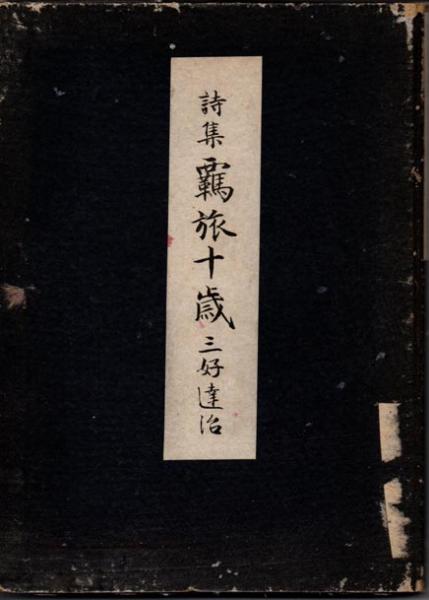 詩集 覊旅十歳 三好達治